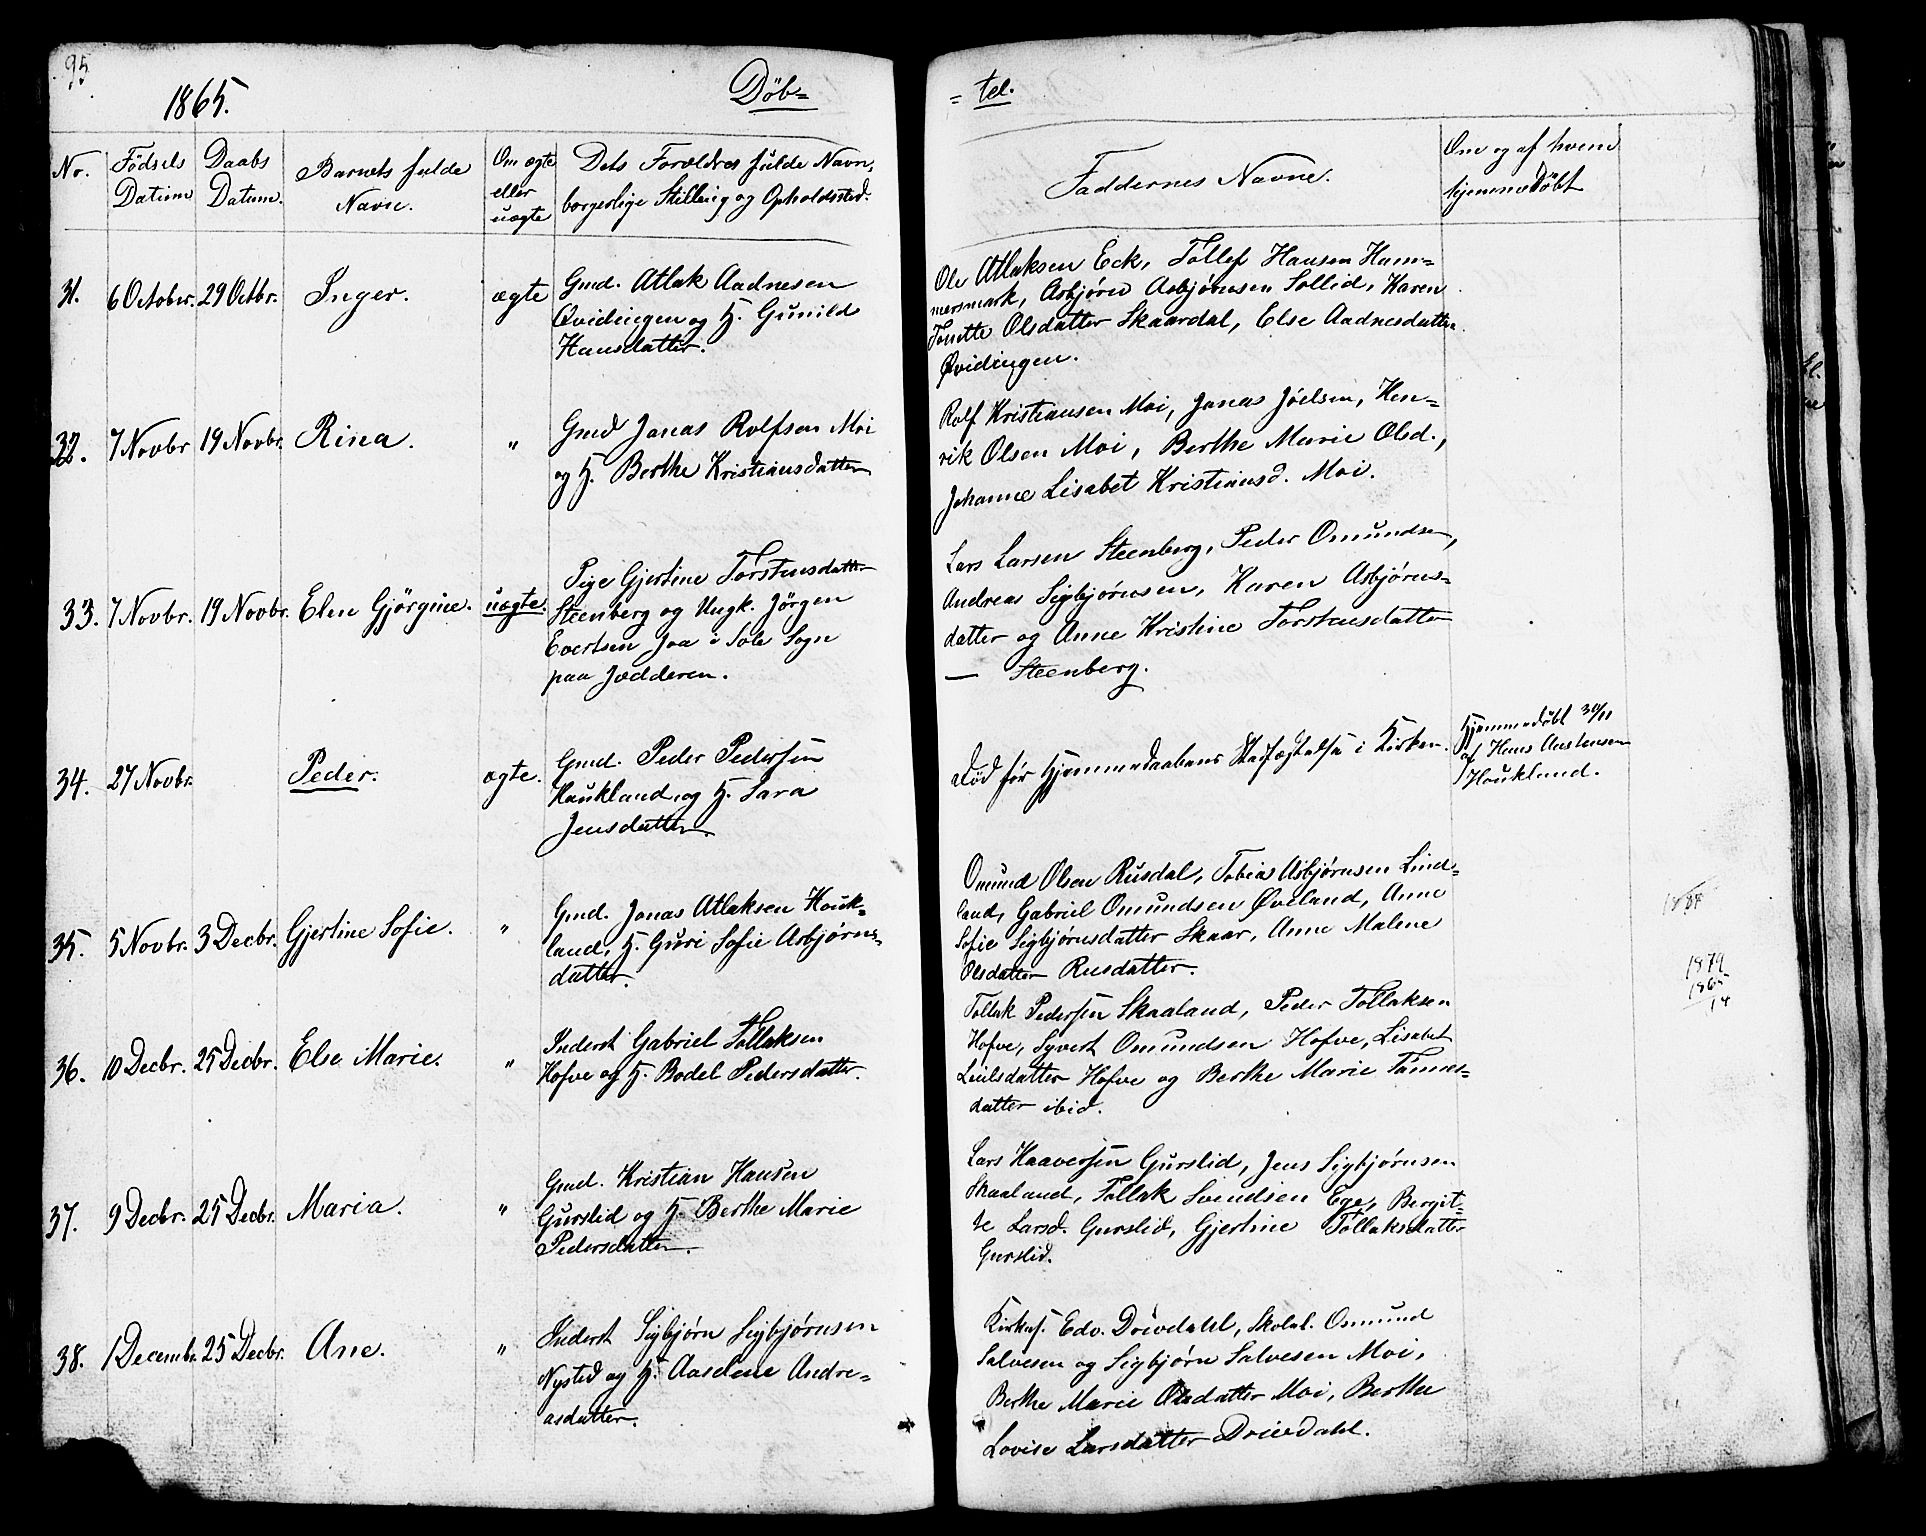 95
1865.
Døb=
= tel.
No.
Fødsels Datum
Daabs Datum.
Barnets fulde Navn.
Om ægte eller uægte
Dets Forældres fulde Navn, borgerlige Stilling og Opholdssted.
Faddernes Navne.
Om og af hvem hjemmedøbt
31. 6 October. 29 Octbr. Inger. ægte
Gmd. Atlak Aadnesen
Qvidingen og H. Gunild
Hansdatter.
Ole Atlaksen Eck, Tollef Hansen Ham=
mersmark, Asbjørn Asbjørnsen Sollid, Karen
Tonette Olsdatter Skaardal, Else Aadnesdatter
Øvidingen.
32. 7 Novbr 19 Novbr. Rina. "
Gmd Jonas Rolfsen Moi
og H. Berthe Kristiansdatter
Rolf Kristiansen Moi, Jonas Jóelsen, Hen=
rik Olsen Moi, Berthe Marie Olsd.,
Johanne Lisabet Kristiansd. Moi.
33. 7 Novbr. 19 Novbr. Elen Gjørgine. uægte.
Pige Gjertine Torstensdatter
Steenberg og Ungk. Jörgen
Evertsen Joa i Sole Sogn
paa Jædderen.
Lars Larsen Steenberg, Peder Omundsen,
Andreas Sigbjørnsen, Karen Asbjørns=
datter og Anne Kristine Torstensdatter
— Steenberg.
34. 27 Novbr. Peder. ægte.
Gmd. Peder Pedersen
Haukland og H. Sara
Jensdatter.
Død før Hjemmedaabens Stadfæstelse i Kirken.
Hjemmedøbt 30/11
af Hans Austensen
Houkland.
35. 5 Novbr. 3 Decbr. Gjertine Sofie. "
Gmd. Jonas Atlaksen Houk=
land, H. Guri Sofie Asbjørns=
datter.
Omund Olsen Rusdal, Tobias Asbjørnsen Lind=
land, Gabriel Omundsen Øveland, Anne
Sofie Sigbjørnsdatter Skaar, Anne Malene
Olsdatter Rusdatter.
1879
1865
14
36. 10 Decbr. 25 Decbr. Else Marie. "
Inderst Gabriel Tollaksen
Hofve og H. Bodel Pedersdatter.
Tollak Pedersen Skaaland, Peder Tollaksen
Hofve, Syvert Omundsen Hofve, Lisabet
Hofve og Berthe Marie Tønnes=
datter ibid.
37. 9 Decbr. 25 Decbr. Maria. "
Gmd. Kristian Hansen
Gurslid og H. Berthe Marie
Pedersdatter.
Lars Haaversen Gurslid, Jens Sigbjørnsen
Skaaland, Tollak Svendsen Ege, Bergit=
te Larsd. Gurslid, Gjertine Tollaksdatter
Gurslid.
38. 1 Decembr. 25 Decbr. Ane. "
Inderst Sigbjørn Sigbjørnsen
Nysted og H. Aaselene Andre=
asdatter.
Kirkes. Edv. Drivdahl, Skolel. Osmund
Salvesen og Sigbjørn Salvesen Moi,
Berthe Marie Olsdatter Moi, Berthe
Lovise Larsdatter Drivdahl.